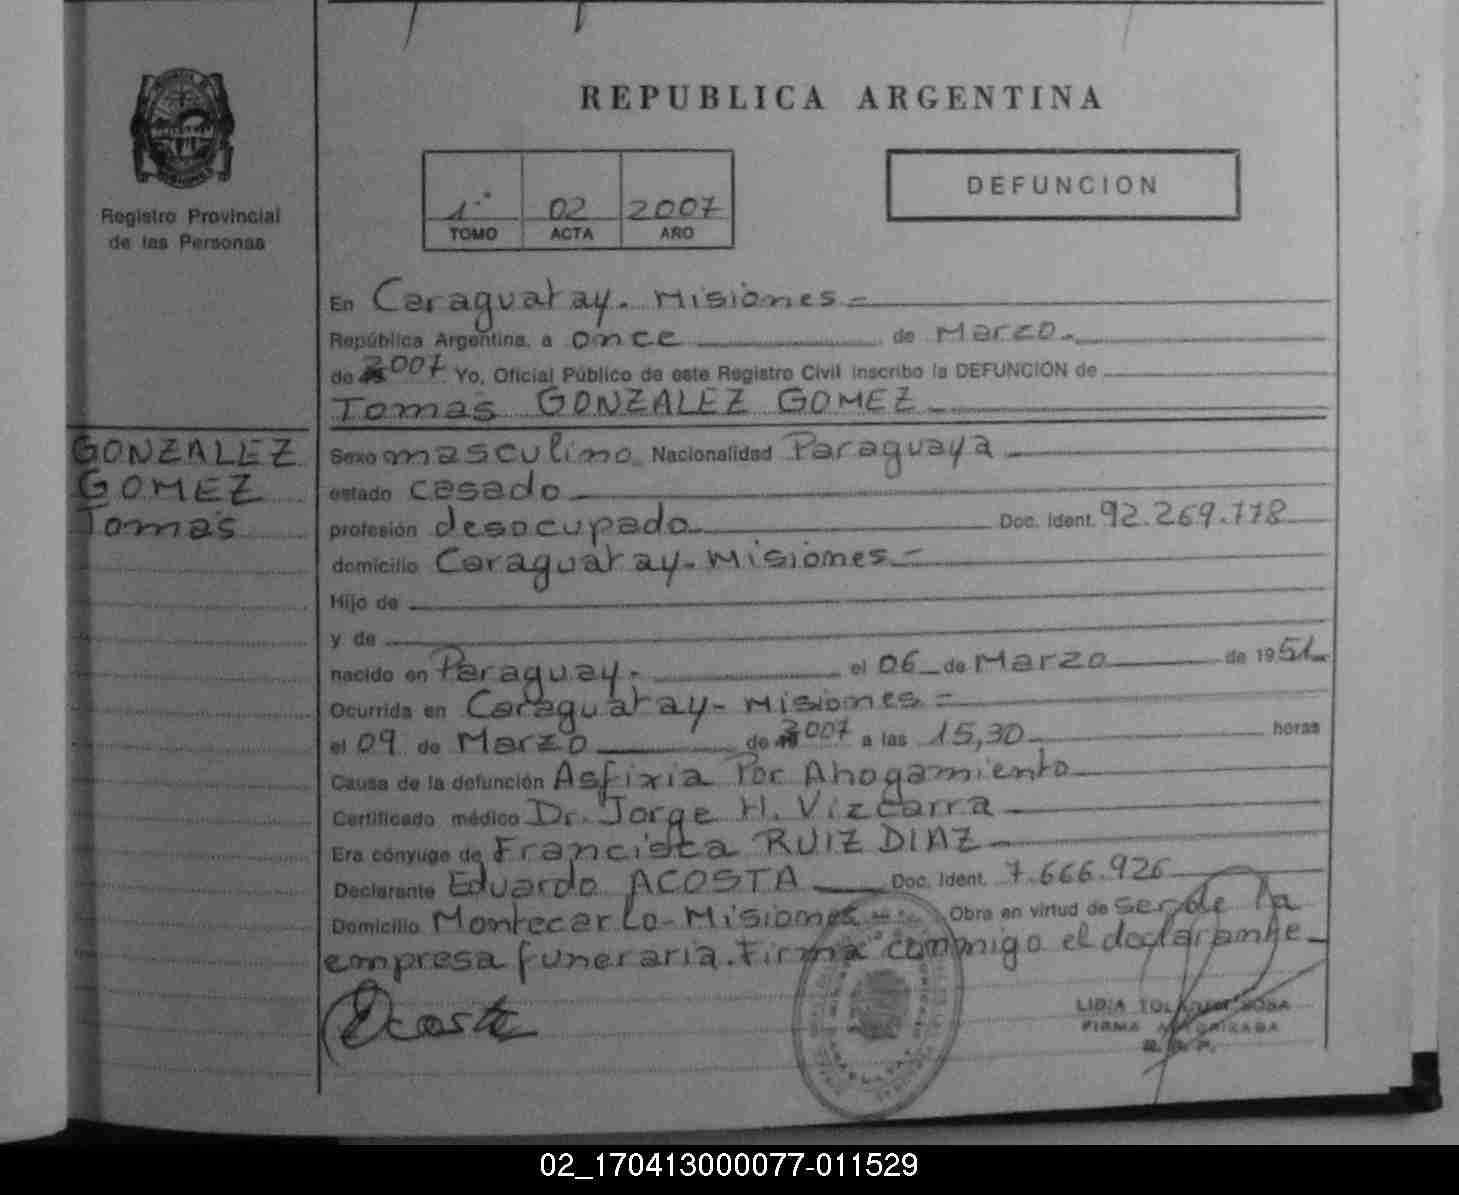 REPUBLICA ARGENTINA
Registro Provincial
de las Personas
1º 02 2007
TOMO ACTA AÑO
DEFUNCION
En Caraguatay - Misiones =
República Argentina, a once de Marzo.
de 2007 Yo, Oficial Público de este Registro Civil inscribo la DEFUNCION de
Tomas GONZALEZ GOMEZ
GONZALEZ
GOMEZ
Tomas
Sexo masculino Nacionalidad Paraguaya
estado casado
profesión desocupado Doc. Ident. 92.269.778
domicilio Caraguatay - Misiones =
Hijo de
y de
nacido en Paraguay - el 06 de Marzo de 1951
Ocurrida en Caraguatay - Misiones =
el 09 de Marzo de 2007 a las 15,30 horas
Causa de la defunción Asfixia Por Ahogamiento
Certificado médico Dr. Jorge H. Vizcarra
Era cónyuge de Francisca RUIZ DIAZ
Declarante Eduardo ACOSTA Doc. Ident. 7.666.926
Domicilio Montecarlo - Misiones Obra en virtud de ser de la
empresa funeraria. Firma conmigo el declarante
Acosta
LIDIA ROSA
FIRMA AUTORIZADA
02_170413000077-011529